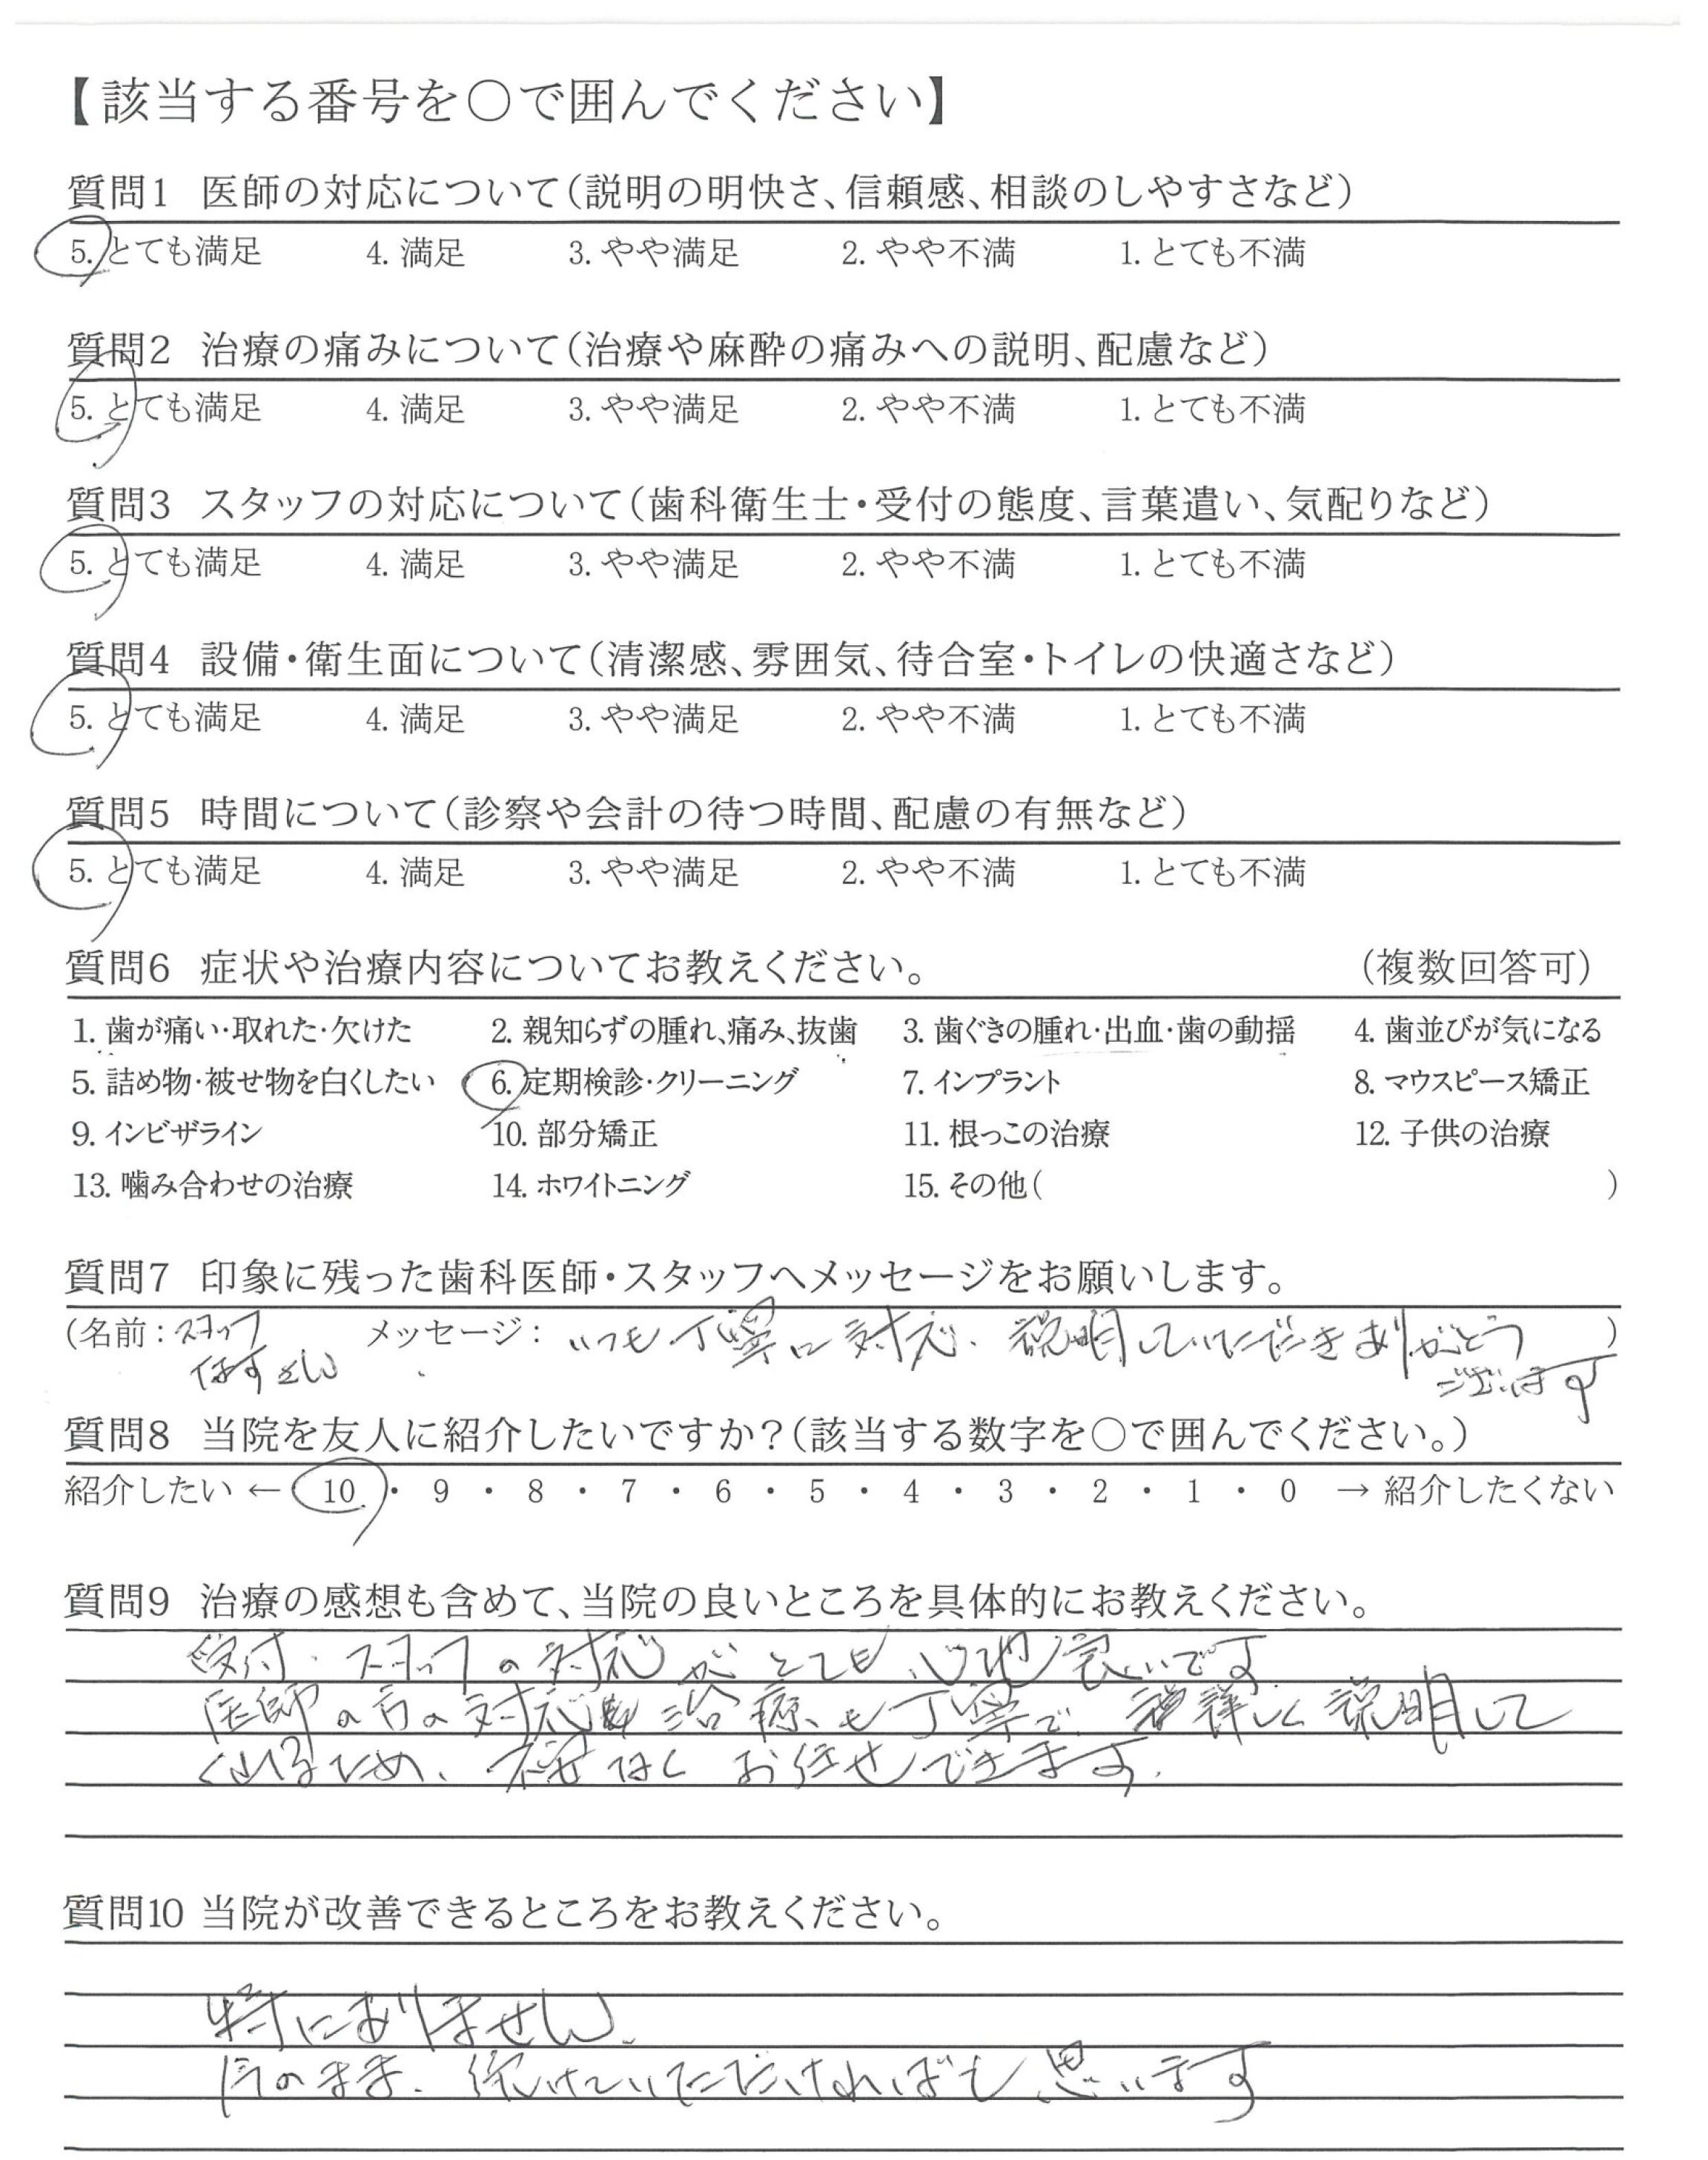 【該当する番号を○で囲んでください】
質問1 医師の対応について(説明の明快さ、信頼感、相談のしやすさなど)
5. とても満足 4. 満足 3. やや満足 2. やや不満 1. とても不満
質問2 治療の痛みについて(治療や麻酔の痛みへの説明、配慮など)
5. とても満足 4. 満足 3. やや満足 2. やや不満 1. とても不満
質問3 スタッフの対応について(歯科衛生士・受付の態度、言葉遣い、気配りなど)
5. とても満足 4. 満足 3. やや満足 2. やや不満 1. とても不満
質問4 設備・衛生面について(清潔感、雰囲気、待合室・トイレの快適さなど)
5. とても満足 4. 満足 3. やや満足 2. やや不満 1. とても不満
質問5 時間について(診察や会計の待つ時間、配慮の有無など)
5. とても満足 4. 満足 3. やや満足 2. やや不満 1. とても不満
質問6 症状や治療内容についてお教えください。 (複数回答可)
1. 歯が痛い・取れた・欠けた 2. 親知らずの腫れ、痛み、抜歯 3. 歯ぐきの腫れ・出血・歯の動揺 4. 歯並びが気になる
5. 詰め物・被せ物を白くしたい 6. 定期検診・クリーニング 7. インプラント 8. マウスピース矯正
9. インビザライン 10. 部分矯正 11. 根っこの治療 12. 子供の治療
13. 噛み合わせの治療 14. ホワイトニング 15. その他( )
質問7 印象に残った歯科医師・スタッフへメッセージをお願いします。
(名前:スタッフ メッセージ: いつも丁寧に対応、説明していただきありがとう )
さん ございます
質問8 当院を友人に紹介したいですか?(該当する数字を○で囲んでください。)
紹介したい ← 10 ・ 9 ・ 8 ・ 7 ・ 6 ・ 5 ・ 4 ・ 3 ・ 2 ・ 1 ・ 0 → 紹介したくない
質問9 治療の感想も含めて、当院の良いところを具体的にお教えください。
受付、スタッフの対応がとても心地良いです
医師の方の対応も治療も丁寧で、詳しく説明して
くれるため、不安なくお任せできます。
質問10 当院が改善できるところをお教えください。
特にありません。
このまま、続けていただければと思います